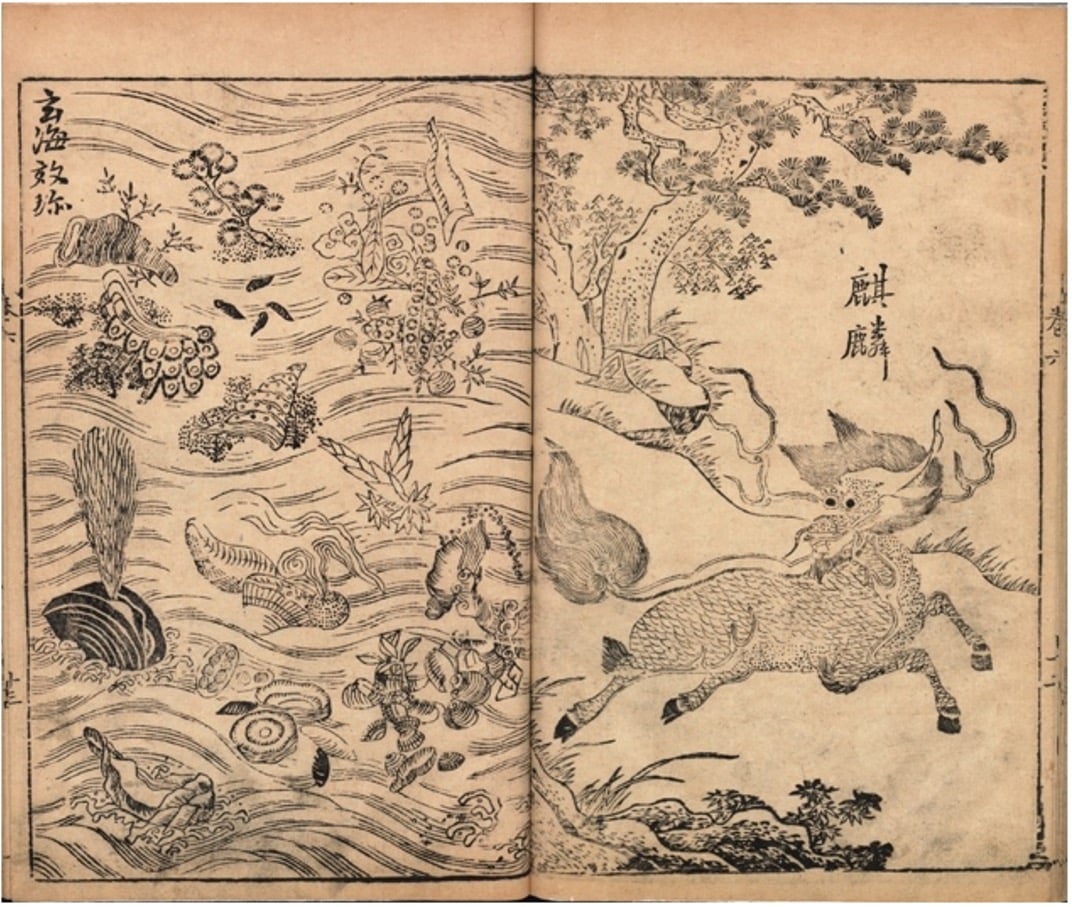 卷六
麒麟
玄海效珎